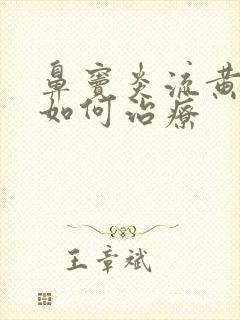 鼻窦炎流黄
如何治疗
王章斌